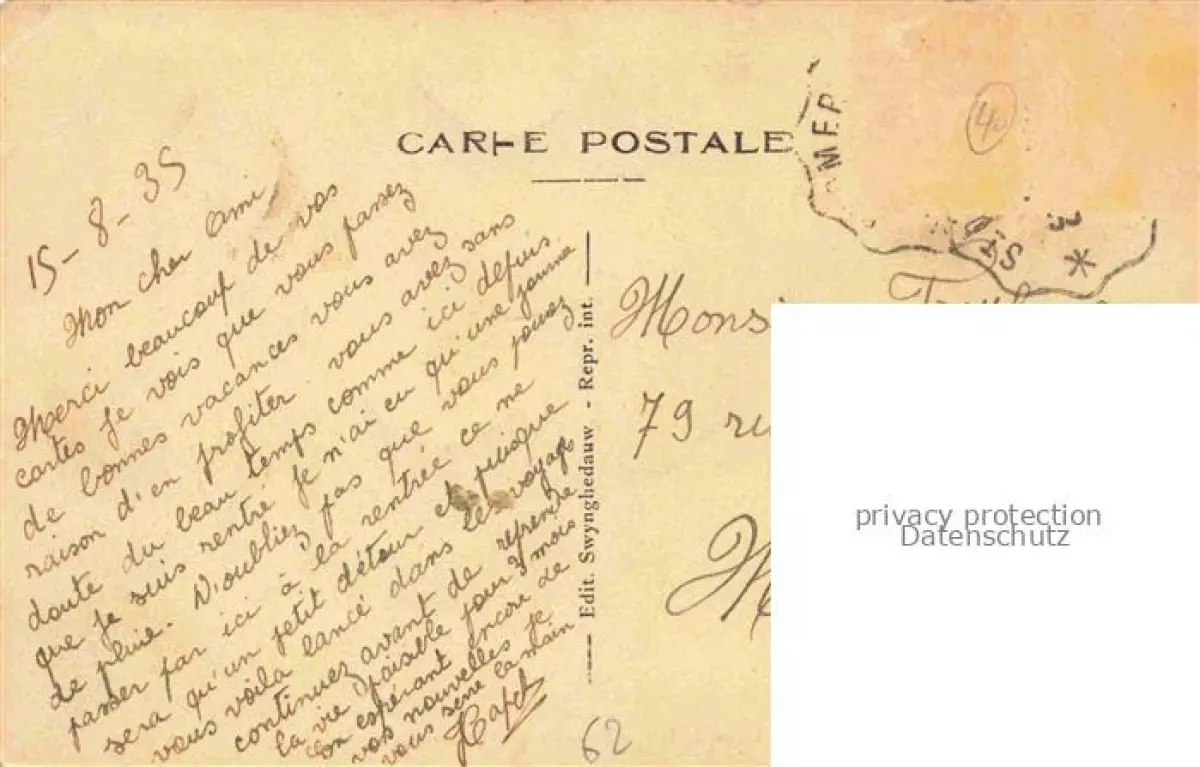 CARTE POSTALE
15-8-35
Mon cher Ami
Merci beaucoup de vos
cartes je vois que vous passez
de bonnes vacances vous avez
raison d'en profiter vous avez sans
doute du beau temps comme ici depuis
que je suis rentré je n'ai eu qu'une journée
de pluie. N'oubliez pas que vous pouvez
passer par ici à la rentrée ce ne
sera qu'un petit détour et puisque
vous voila lancé dans les voyage
continuez avant de reprendre
la vie paisible pour 3 mois
En espérant encore de
vos nouvelles je
vous serre la main
Edit. Swynghedauw - Repr. int.
MER
SIO
3
*
40
Mons
79 ru
62
privacy protection
Datenschutz